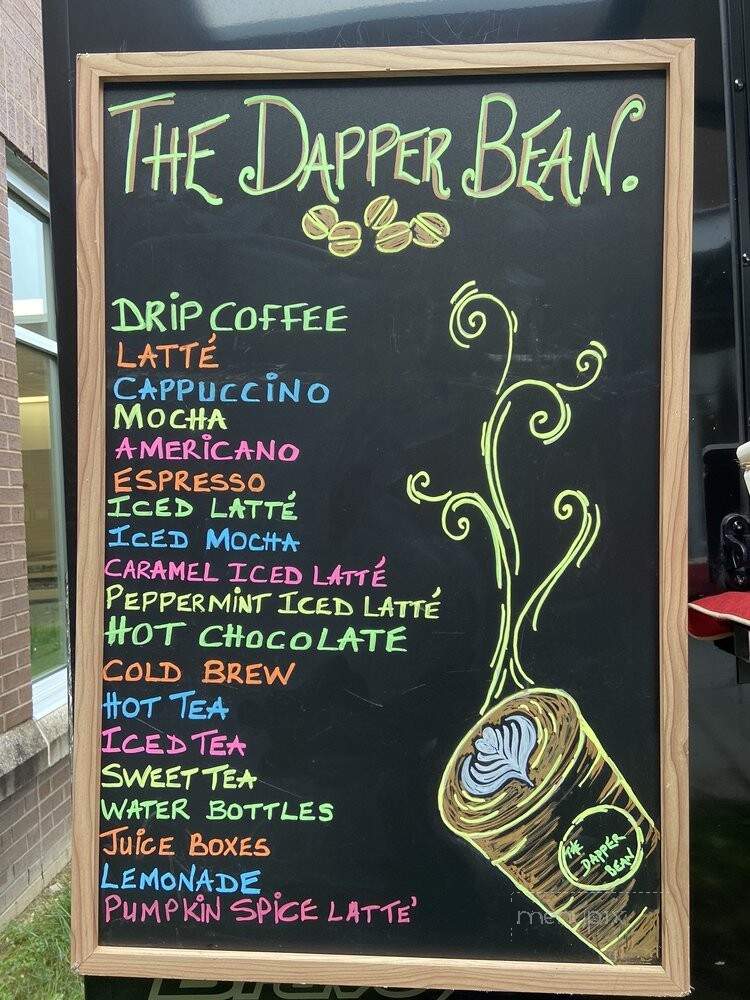 THE DAPPER BEAN.
DRIP COFFEE
LATTÉ
CAPPUCCINO
MOCHA
AMERICANO
ESPRESSO
ICED LATTÉ
ICED MOCHA
CARAMEL ICED LATTÉ
PEPPERMINT ICED LATTÉ
HOT CHOCOLATE
COLD BREW
HOT TEA
ICED TEA
SWEET TEA
WATER BOTTLES
JUICE BOXES
LEMONADE
PUMPKIN SPICE LATTE'
THE
DAPPER
BEAN
menupix